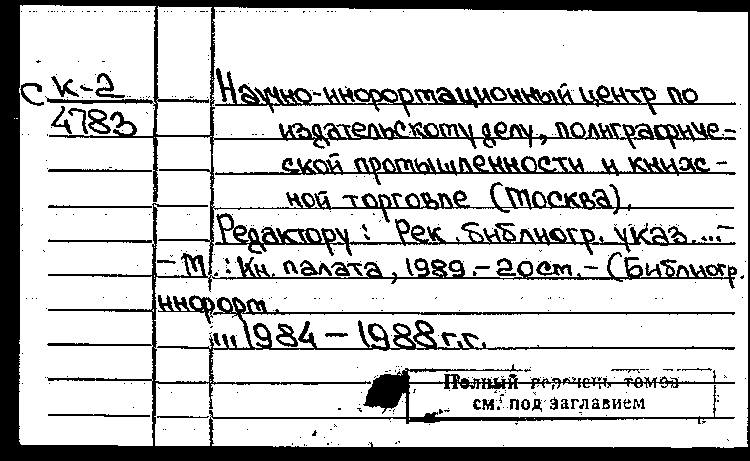 С К-2
4783
Научно-информационный центр по
издательскому делу, полиграфиче-
ской промышленности и книж-
ной торговле (Москва).
Редактору: Рек. библиогр. указ...-
- М.: Кн. палата, 1989.-20см.-(Библиогр.
информ.
...1984-1988г.г.
Полный перечень томов
см. под заглавием